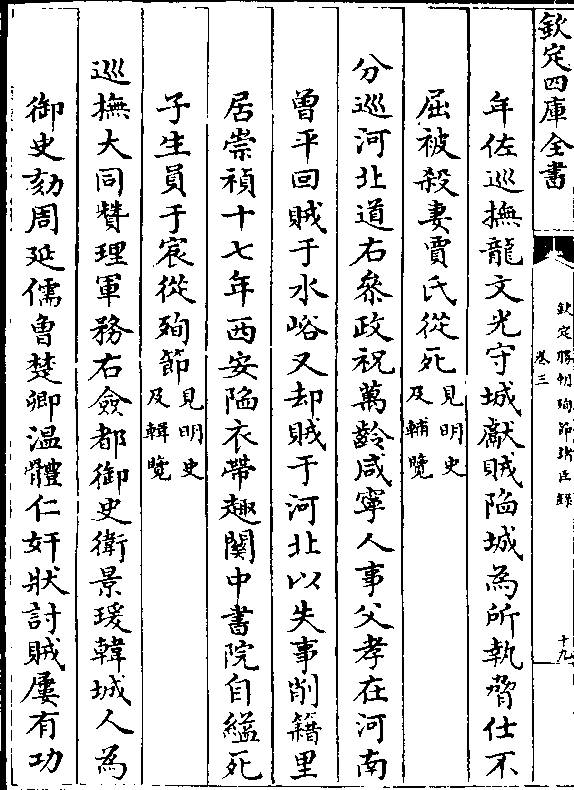 欽定四庫全書
欽定勝朝殉節諸臣錄
卷三
十九
年佐巡撫龍文光守城獻賊陷城為所執脅仕不
屈被殺妻賈氏從死見明史及輔覽
分巡河北道右叅政祝萬齡咸寧人事父孝在河南
曾平回賊于水峪又却賊于河北以失事削籍里
居崇禎十七年西安陷衣帶趣關中書院自縊死
子生員于宸從殉節見明史及輯覽
巡撫大同贊理軍務右僉都御史衛景瑗韓城人為
御史劾周延儒曾楚卿温體仁奸狀討賊屢有功